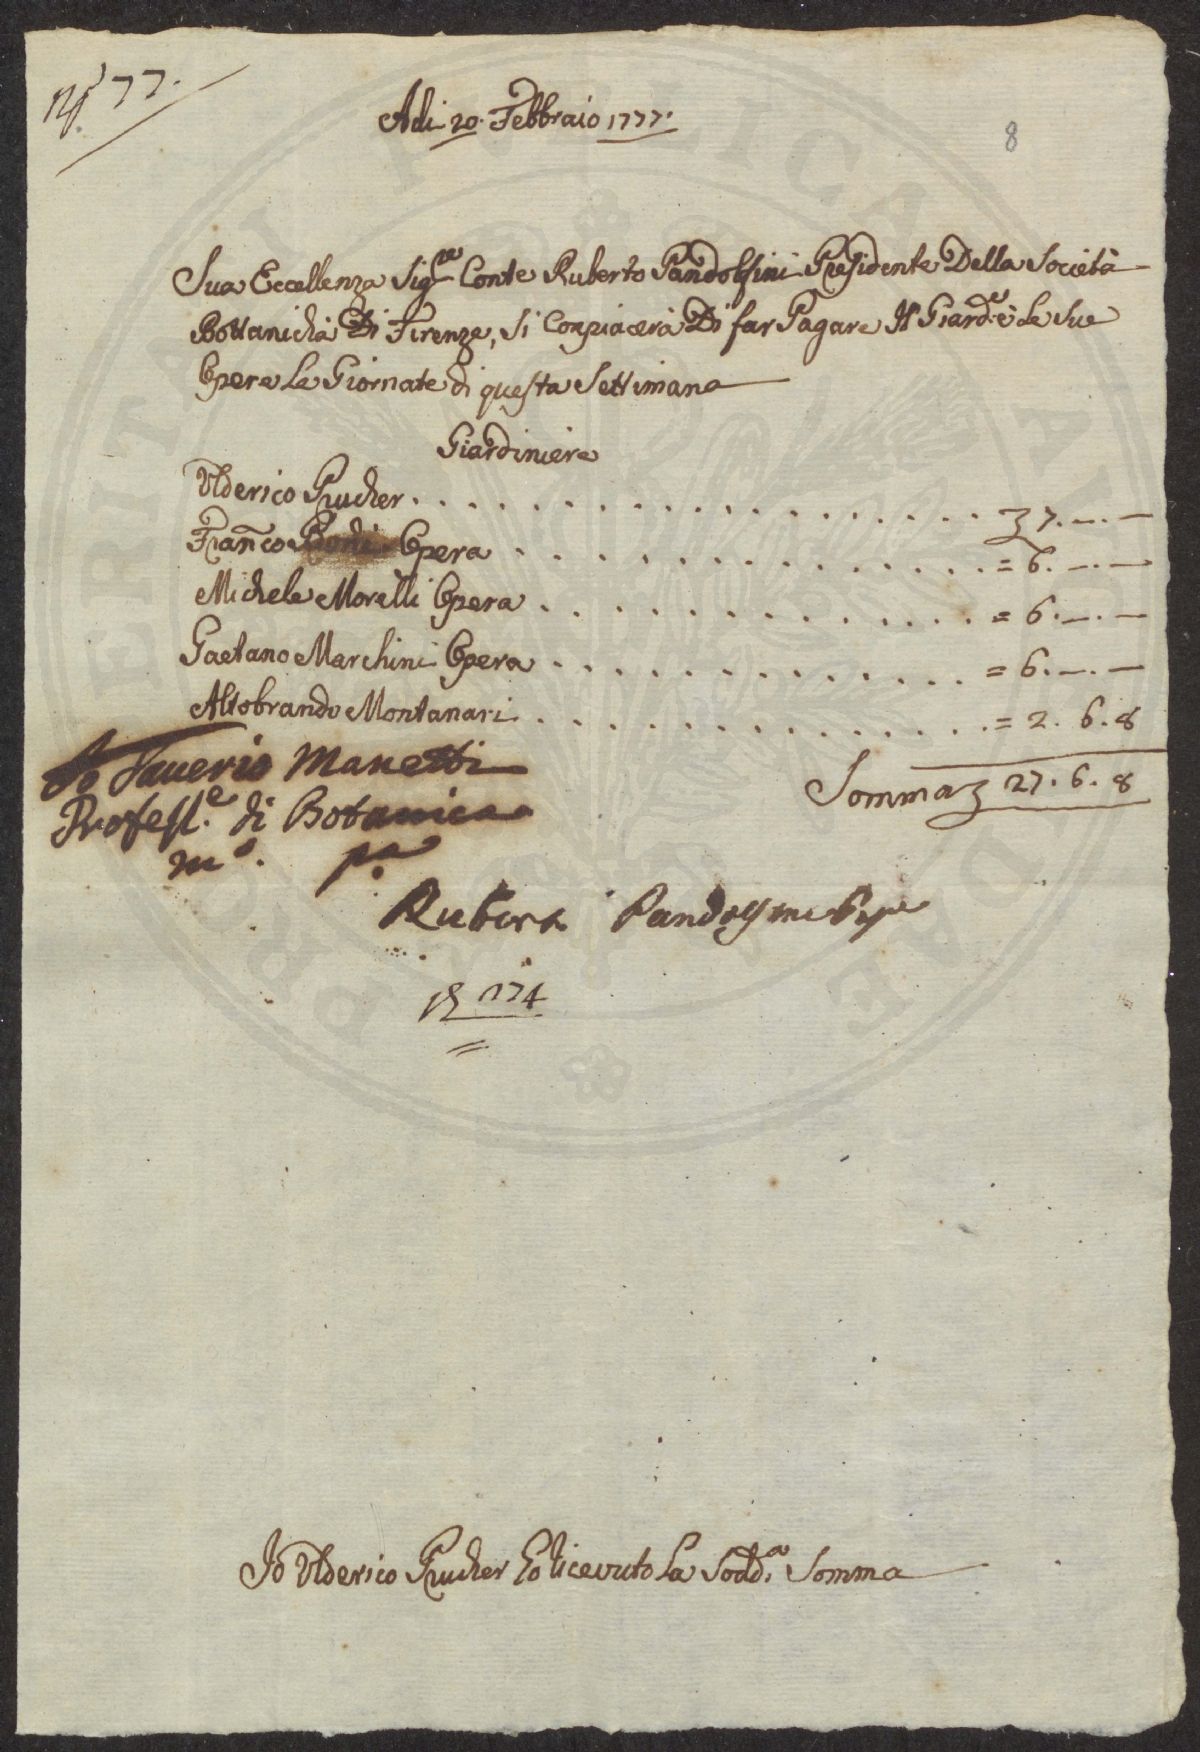 N.º 77.
Adi 20. Febbraio 1777.
8
Sua Eccellenza Sig.re Conte Ruberto Pandolfini Presidente Della Società
Bottanicha Di Firenze, si Conpiacerà Di far Pagare Il Giard.e è Le Sue
Opere Le Giornate di questa Settimana
Giardiniere
Ulderico Prucher . . . . . . . . . . . . . . . . Ʒ 7. —. —
Fran.co Opera . . . . . . . . . . . . . = 6. —. —
Michele Morelli Opera . . . . . . . . . . . . = 6. —. —
Gaetano Marchini Opera . . . . . . . . . . . = 6. —. —
Altobrando Montanari . . . . . . . . . . . . = 2. 6. 8
Somma Ʒ 27. 6. 8
Io Saverio Manetti
Profess.e di Botanica
m.o p.a
Ruberto Pandolfini
174
Io Ulderico Prucher ho ricevuto La Sodd.a Somma
PVBLICAE
VERITATI